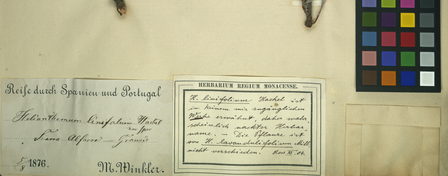 Reise durch Spanien und Portugal
Helianthemum linifolium Hackel
in spec.
Sierra Alfacar — Granada
1876.
M. Winkler.
HERBARIUM REGIUM MONACENSE.
H. linifolium Hackel ist
in keinem mir zugänglichen
Werke erwähnt, daher wahr
scheinlich nackter Herbar
name. Die Pflanze ist
von H. lavandulifolium Mill.
nicht verschieden.